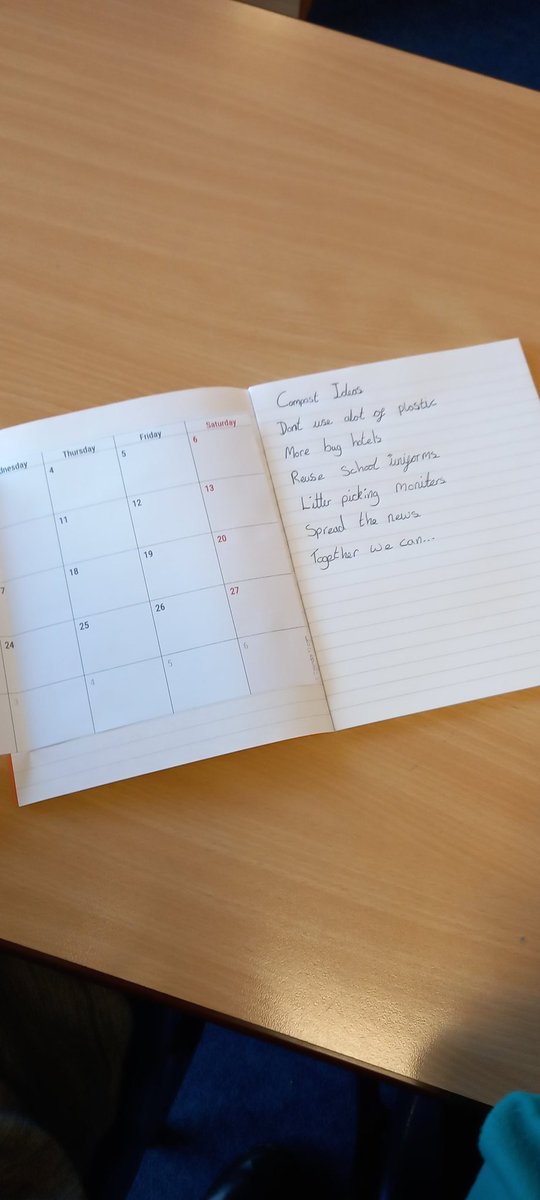 dnesday Thursday Friday Saturday
4 5 6
11 12 13
7 18 19 20
24 25 26 27
3 4 5 6
Compost Ideas
Dont use alot of plastic
More bug hotels
Reuse School Uniforms
Litter picking moniters
Spread the news
Together we can...